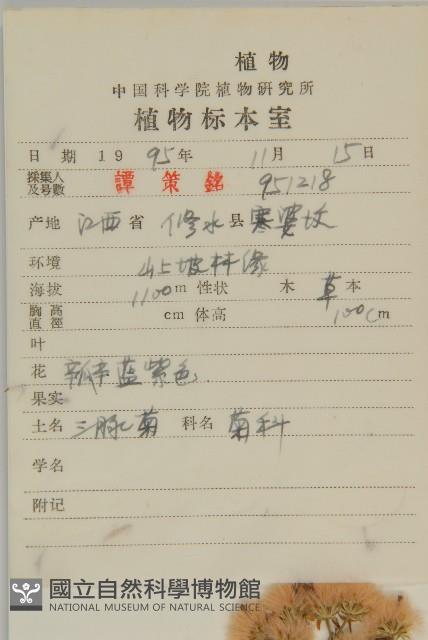 植物
中国科学院植物研究所
植物标本室
日期 1995年 11月 15日
採集人及号數 譚策銘 951218
产地 江西省 修水县 寒婆坳
环境 山坡林缘
海拔 1100m 性状 木 草本
胸高直徑 cm 体高 100cm
叶
花 瓣 蓝紫色.
果实
土名 三脉菊 科名 菊科
学名
附记
國立自然科學博物館
NATIONAL MUSEUM OF NATURAL SCIENCE